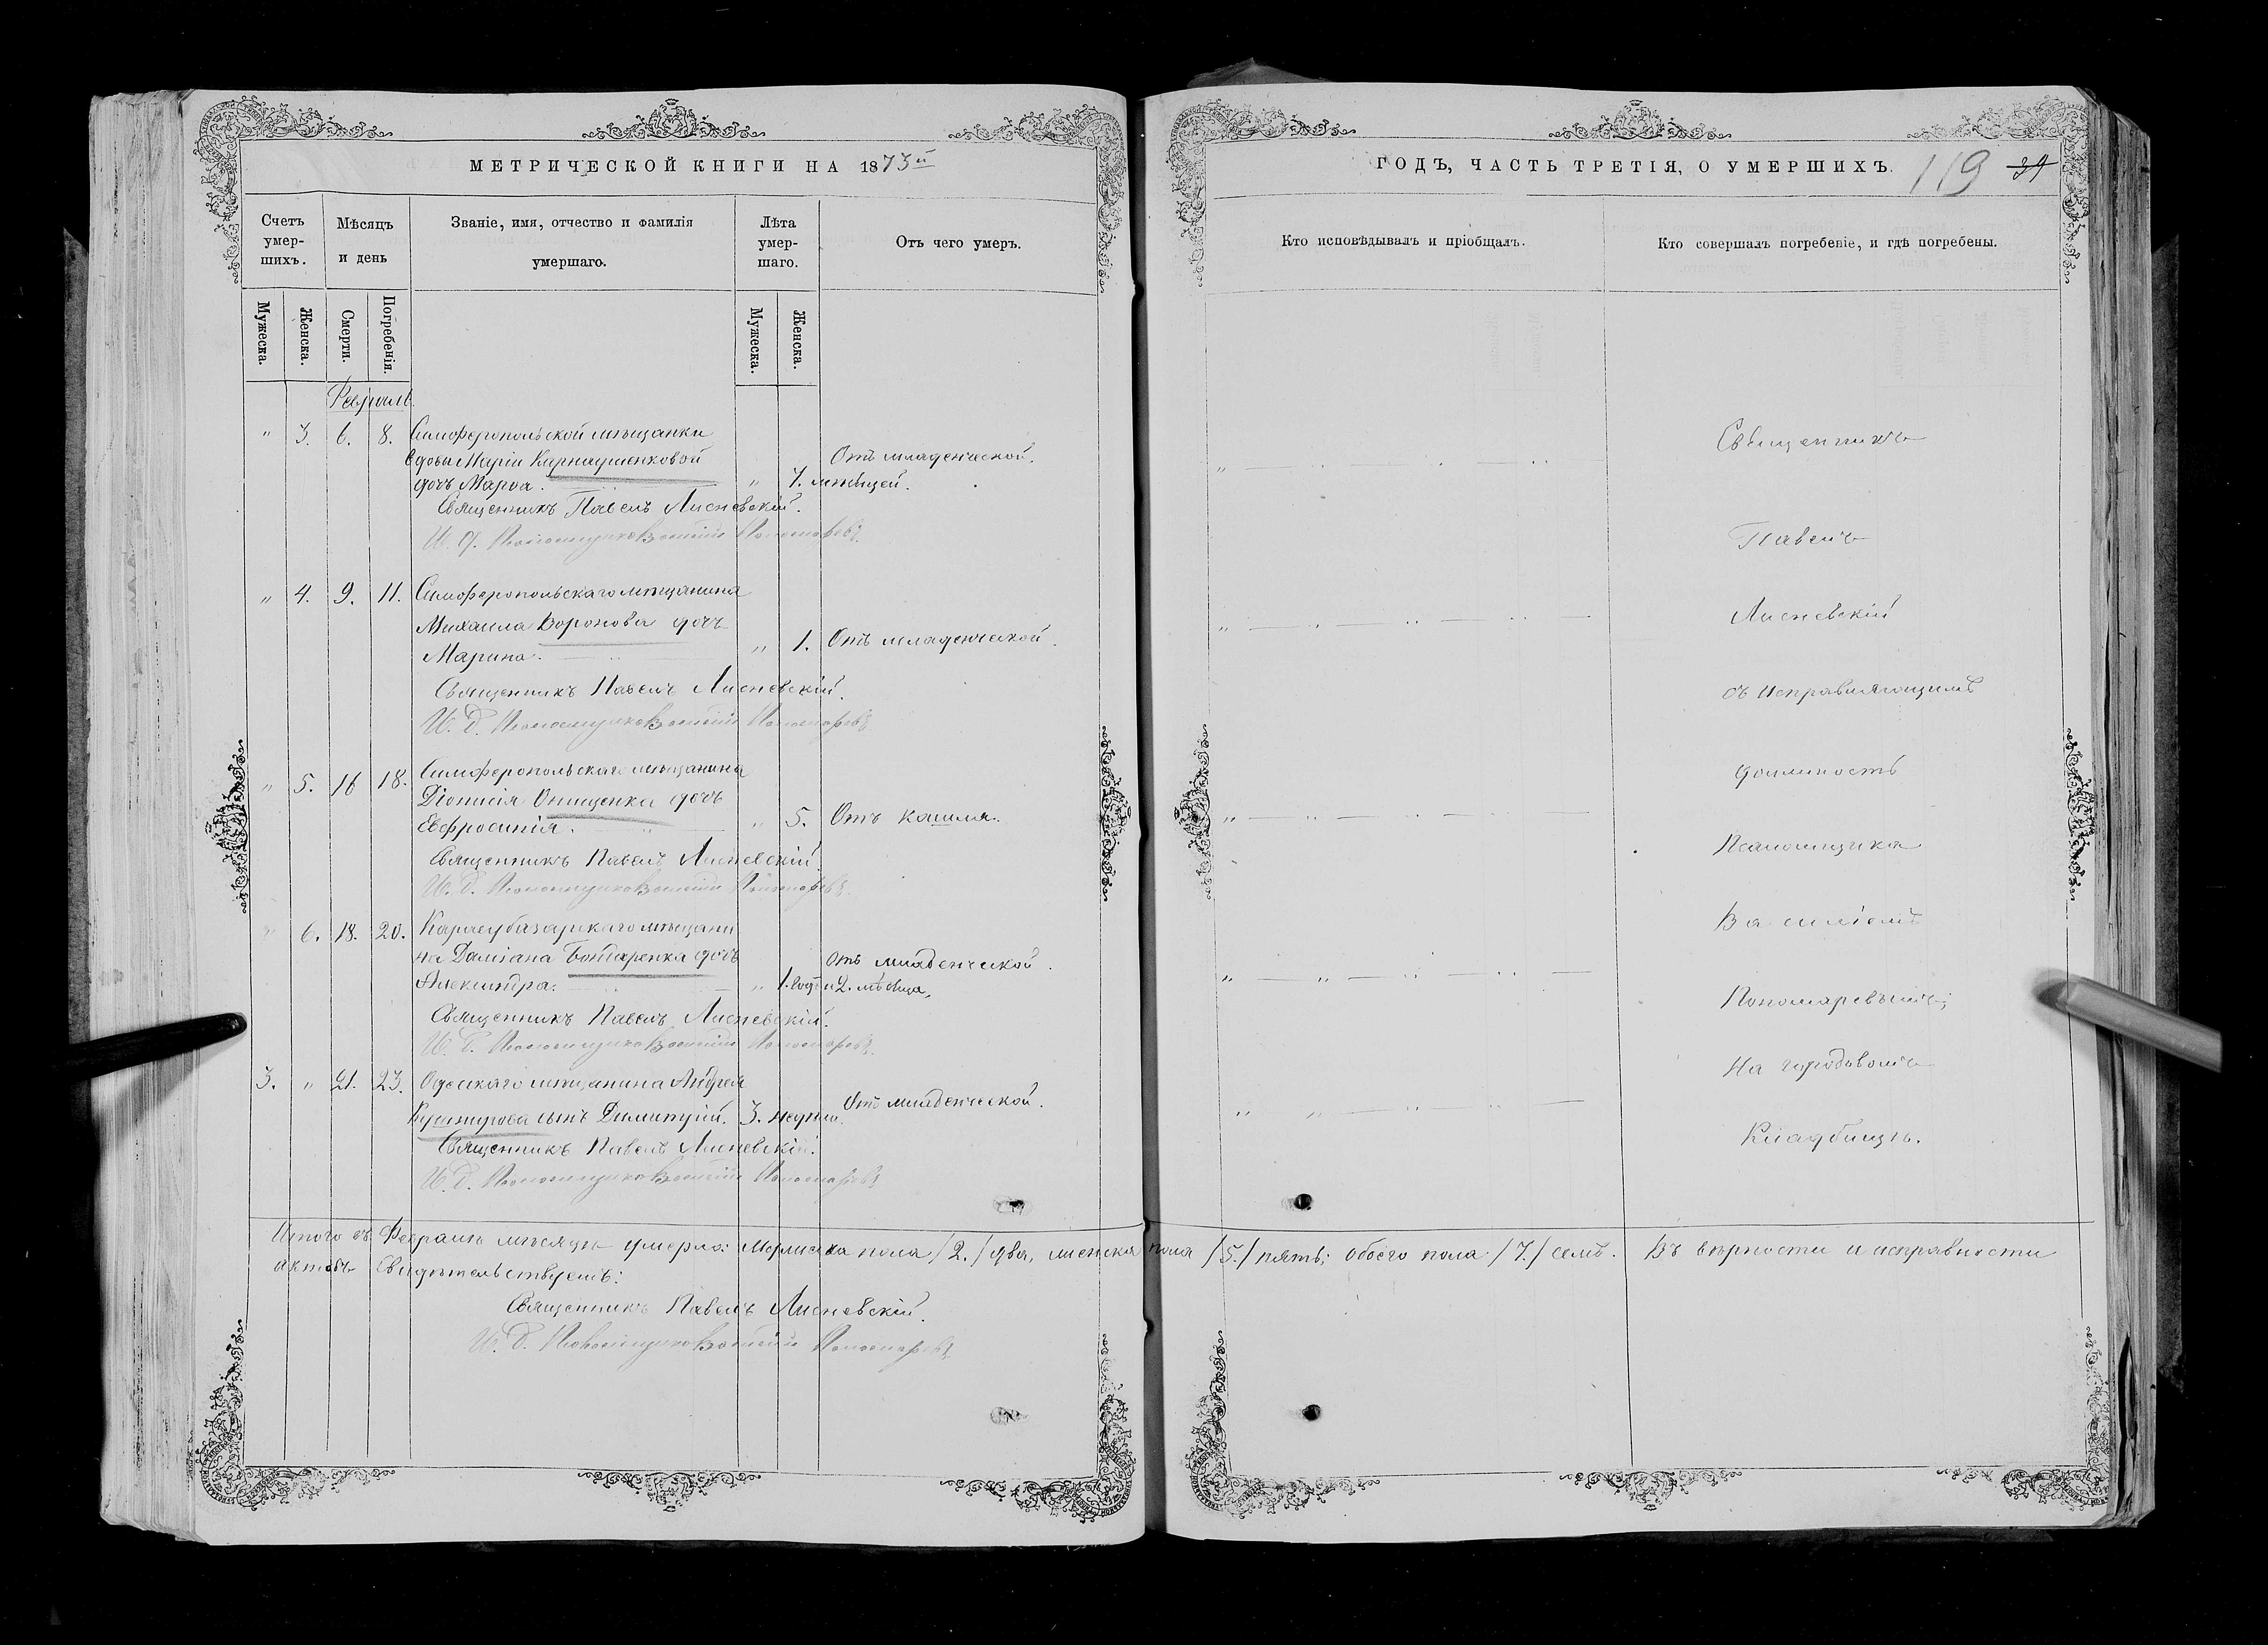 МЕТРИЧЕСКОЙ КНИГИ НА 1873й
Счетъ умер-шихъ.
Мѣсяцъ и день
Званіе, имя, отчество и фамилія умершаго.
Лѣта умер-шаго.
Отъ чего умеръ.
Мужеска.
Женска.
Смерти.
Погребенія.
Мужеска.
Женска.
Февраль.
" 3. 6. 8. Симферопольской мѣщанки
вдовы Маріи Карнаушенковой
Отъ младенческой.
дочь Марѳа. " 7. мѣсяцей.
Священникъ Павелъ Лисневскій.
И. Д. Псаломщика Василій Пономаревъ
" 4. 9. 11. Симферопольскаго мѣщанина
Михаила Воронова дочь
Марина. " 1. Отъ младенческой.
Священникъ Павелъ Лисневскій.
И. Д. Псаломщика Василій Пономаревъ
" 5. 16 18. Симферопольскаго мѣщанина
Діонисія Онищенка дочь
Евфросинія. " 5. Отъ кашля.
Священникъ Павелъ Лисневскій
И. Д. Псаломщика Василій Пономаревъ
" 6. 18. 20. Карасубазарскаго мѣщани
на Даміана Бондаренка дочь
Отъ младенческой.
Александра. " 1. годъ и 2. мѣсяца.
Священникъ Павелъ Лисневскій.
И. Д. Псаломщика Василій Пономаревъ
3. " 21. 23. Одесскаго мѣщанина Андрея
Кушнирова сынъ Димитрій. 3. недѣли. Отъ младенческой.
Священникъ Павелъ Лисневскій.
И. Д. Псаломщика Василій Пономаревъ
Итого въ Февралѣ мѣсяцѣ умерло: Мужеска пола /2./ два, женска пола /5./ пять; обоего пола /7./ семь. Въ вѣрности и исправности
актовъ Свидѣтельствуемъ:
Священникъ Павелъ Лисневскій.
И. Д. Псаломщика Василій Пономаревъ
ГОДЪ, ЧАСТЬ ТРЕТІЯ, О УМЕРШИХЪ.
119 39
Кто исповѣдывалъ и пріобщалъ.
Кто совершалъ погребеніе, и гдѣ погребены.
Священникъ
Павелъ
Лисневскій
съ исправляющимъ
должность
Псаломщика
Василіемъ
Пономаревымъ;
На городовомъ
Кладбищѣ.